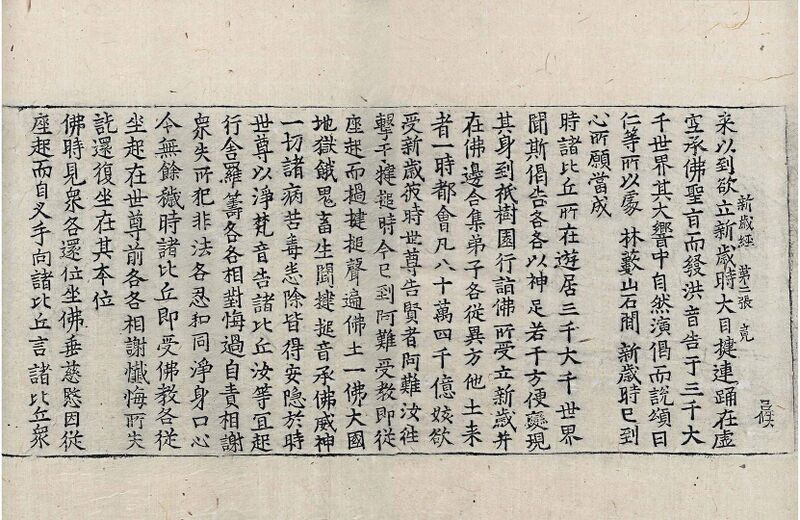 来以到欲立新歲時大目揵連踊在虛
空承佛聖旨而發洪音告于三千大
千世界其大響中自然演偈而說頌曰
仁等所以處 林藪山石間 新歲時已到
心所願當成
時諸比丘所在遊居三千大千世界
聞斯偈告各各以神足若干方便變現
其身到祇樹園行詣佛所受立新歲并
在佛邊合集弟子各從異方他土来
者一時都會凡八十萬四千億姟欲
受新歲彼時世尊告賢者阿難汝往
擊于揵搥時今已到阿難受教即從
座起而撾揵搥聲遍佛土一佛大國
地獄餓鬼畜生聞揵搥音承佛威神
一切諸病苦毒悉除皆得安隱於時
世尊以淨梵音告諸比丘汝等宜起
行舍羅籌各各相對悔過自責相謝
衆失所犯非法各忍和同淨身口心
令無餘穢時諸比丘即受佛教各從
坐起在世尊前各各相謝懺悔所失
訖還復坐在其本位
佛時見衆各還位坐佛垂慈愍因從
座起而自叉手向諸比丘言諸比丘衆
新歲經 第二張 竟